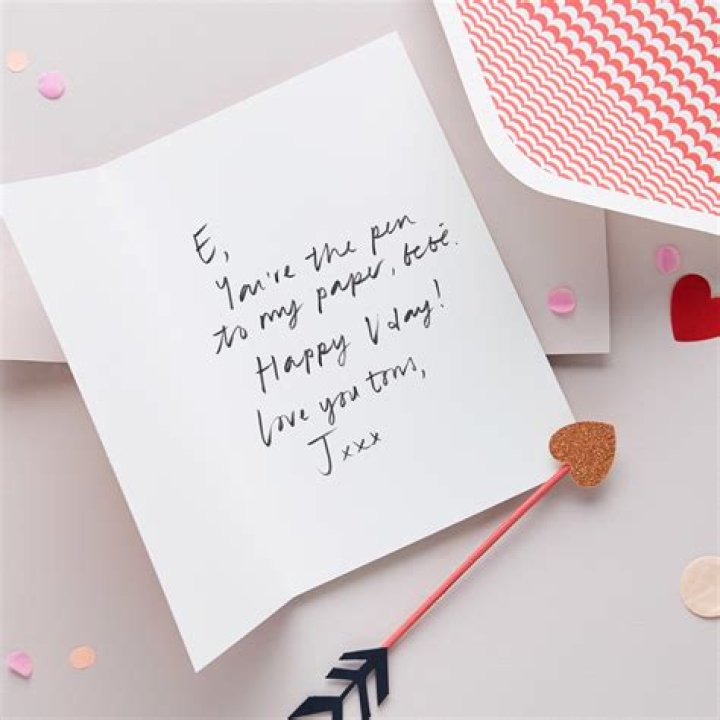 E,
You're the pen
to my paper, bebé.
Happy V day!
love you tons,
Jxxx